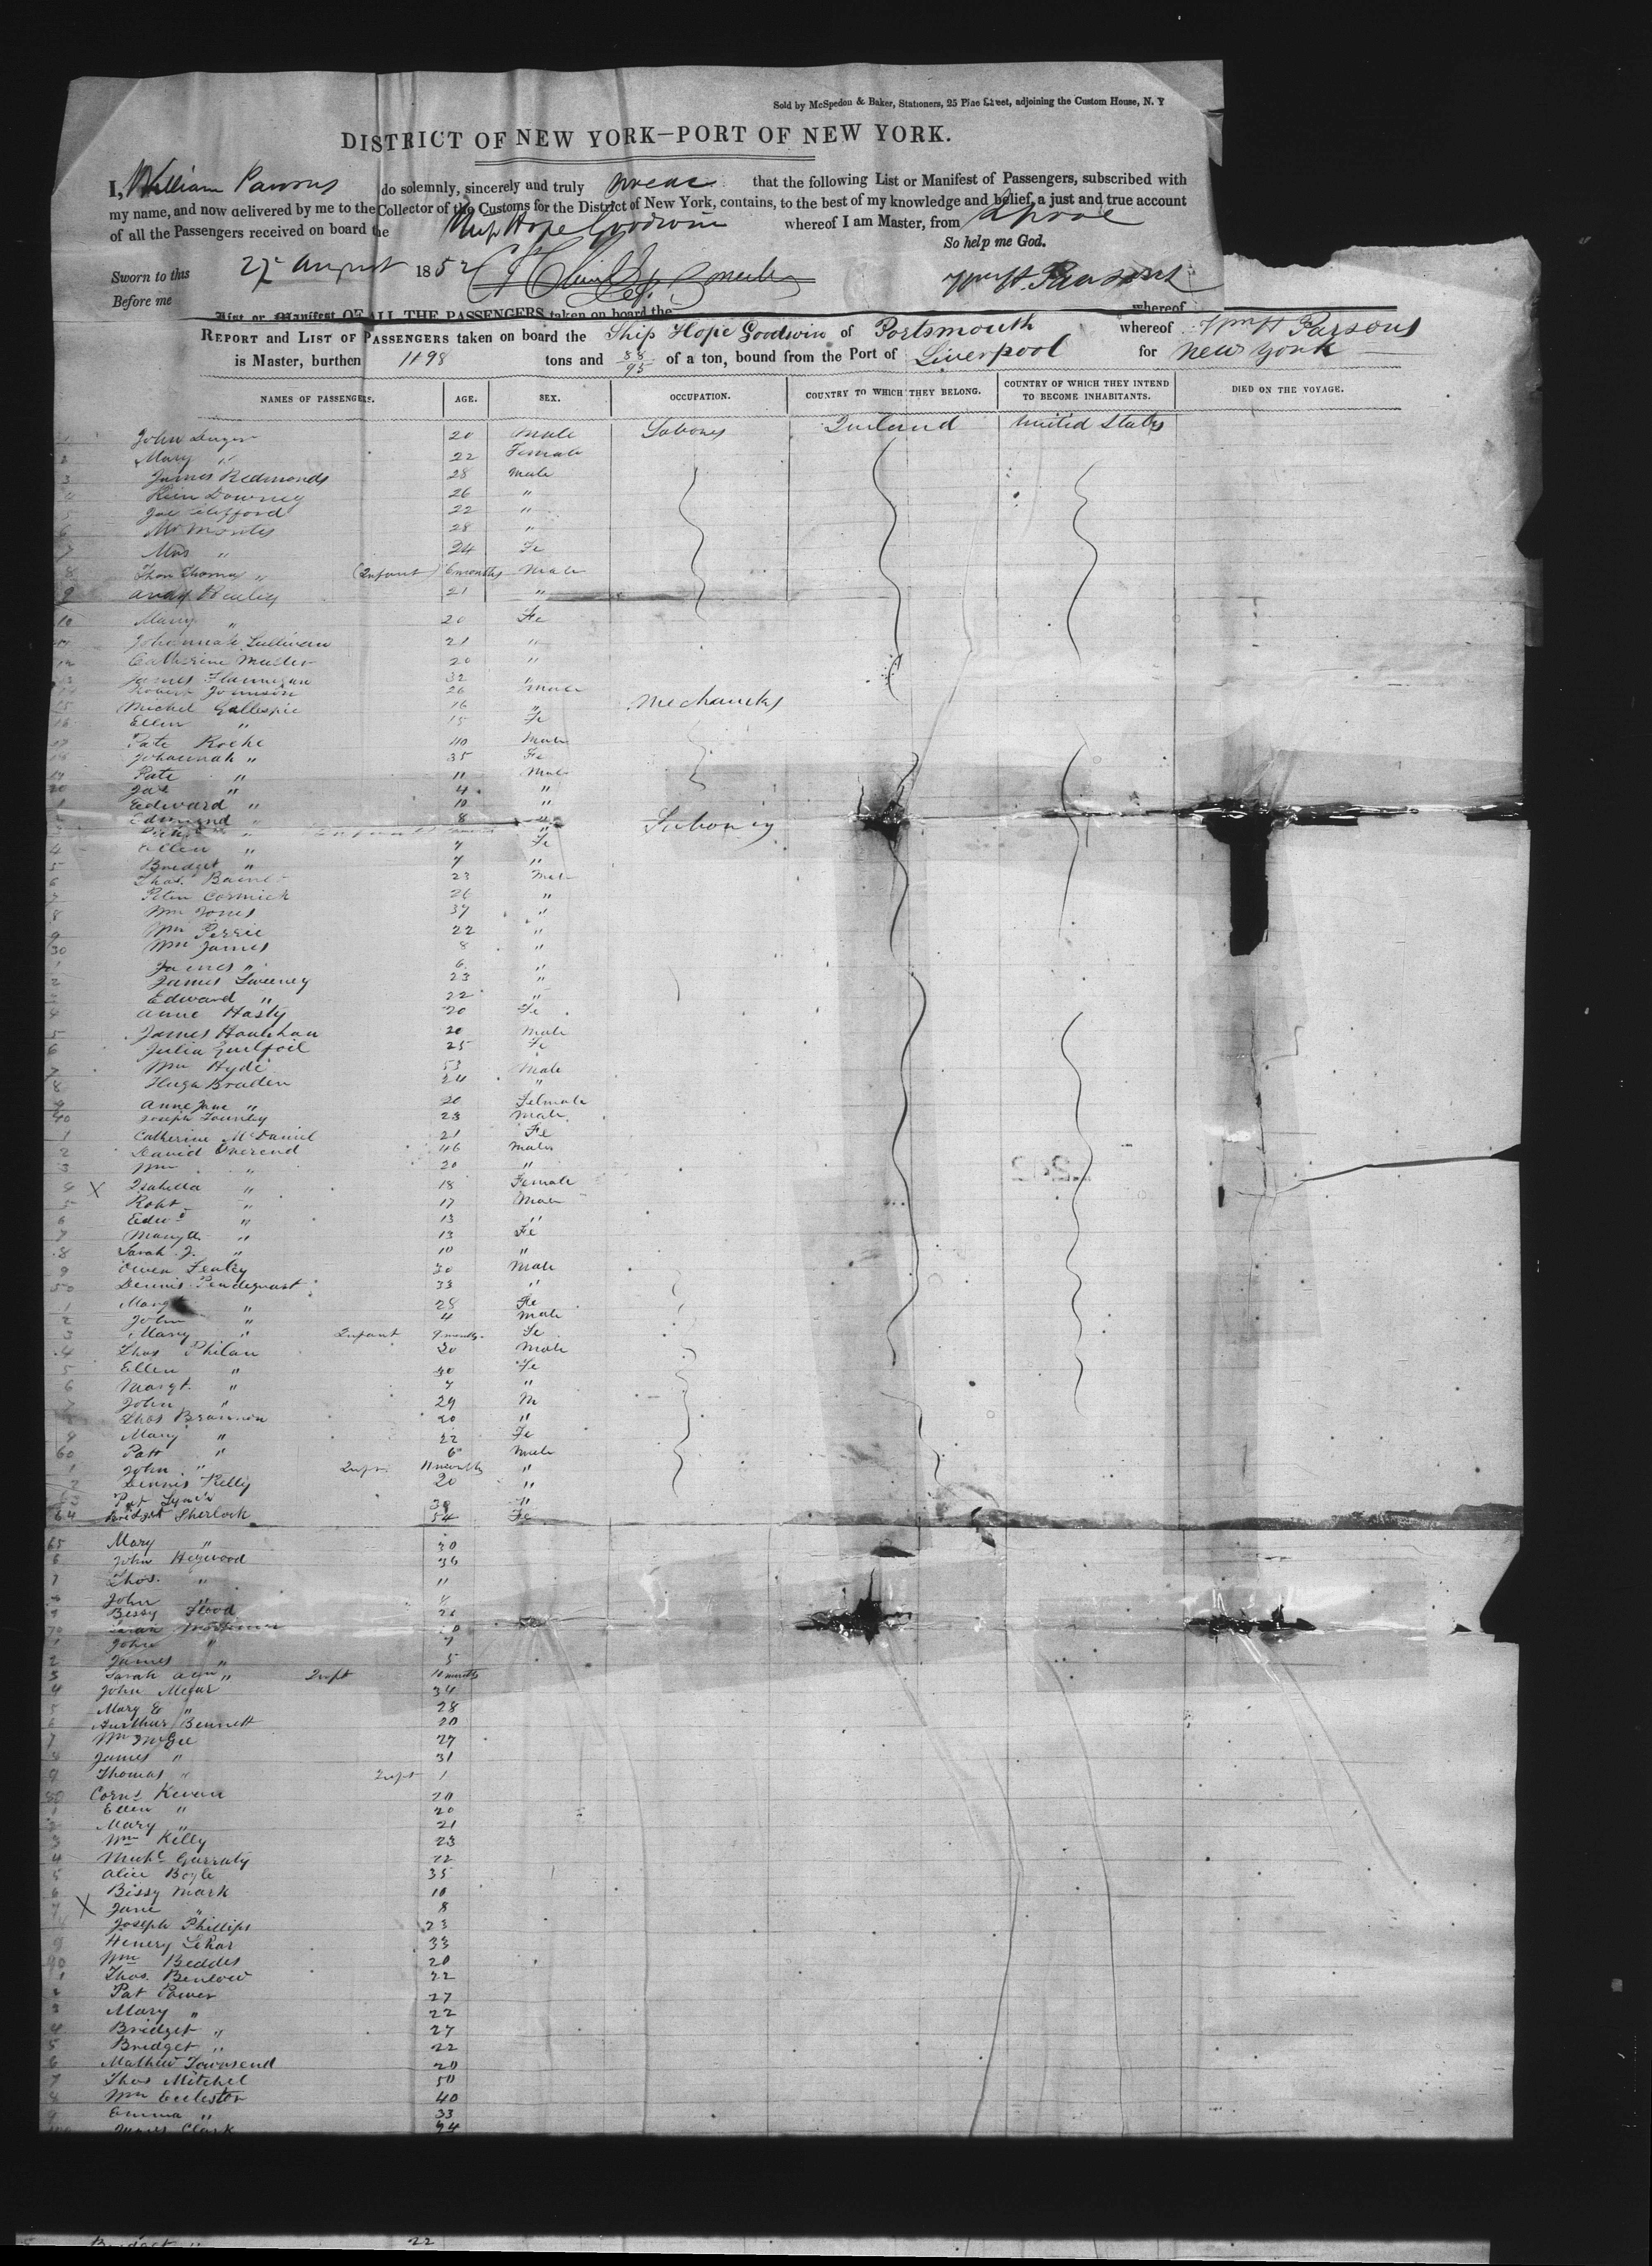 Sold by McSpedon & Baker, Stationers, 25 Pine Street, adjoining the Custom House, N. Y
DISTRICT OF NEW YORK—PORT OF NEW YORK.
I, William Parsons do solemnly, sincerely and truly swear that the following List or Manifest of Passengers, subscribed with
my name, and now delivered by me to the Collector of the Customs for the District of New York, contains, to the best of my knowledge and belief, a just and true account
of all the Passengers received on board the Ship Hope Goodwin whereof I am Master, from Lpool
So help me God.
Sworn to this 27 August 1852
Before me
Wm H. Parsons
List or Manifest OF ALL THE PASSENGERS taken on board the whereof
REPORT and LIST OF PASSENGERS taken on board the Ship Hope Goodwin of Portsmouth whereof Wm H Parsons
is Master, burthen 1198 tons and 88/95 of a ton, bound from the Port of Liverpool for New York
NAMES OF PASSENGERS. AGE. SEX. OCCUPATION. COUNTRY TO WHICH THEY BELONG. COUNTRY OF WHICH THEY INTEND TO BECOME INHABITANTS. DIED ON THE VOYAGE.
1 John 20 Male Ireland United States
2 Mary " 22 Female
3 James Redmonds 28 Male
4 Downey 26 "
5 22 "
6 Mr 28 "
7 Mrs " 24 Fe
8 Thoma " (Infant) 6 months Male
9 21 "
10 Mary " 20 Fe
11 Johannah Sullivan 21 "
12 Catherine 20 "
13 James Flannigan 32 "
14 Robert Johnson 26 Male
15 Michel Gallespie 16 " Mechanicks
16 Ellen " 15 Fe
17 Pate Roche 40 Male
18 Johannah " 35 Fe
19 Pate " 11 Male
20 Jas " 4 "
1 Edward " 10 "
2 Edmund " 8 "
" Infant "
4 Ellen " 7 Fe
5 Bridget " 7 "
6 Thos. 23 Male
7 Peter Cormick 26 "
8 Wm Jones 37 "
9 Wm 22 "
30 Wm James 8 "
1 James " 6 "
2 James Sweeney 23 "
3 Edward " 22 "
4 Anne Hasty 20 Fe
5 James 20 Male
6 Julia Guilfoil 25 Fe
7 Wm Hyde 53 Male
8 Hugh Braden 24 "
9 Anne Jane " 20 Female
40 Joseph 23 Male
1 Catherine McDaniel 21 Fe
2 David Overend 46 Male
3 Wm " 20 "
4 X Isabella " 18 Female
5 Robt " 17 Male
6 Edwd " 13 "
7 Mary A. " 13 Fe
8 Sarah J. " 10 "
9 Owen 30 Male
50 Dennis Pendegrast 33 "
1 Margt " 28 Fe
2 John " 4 Male
3 Mary " Infant 9 months Fe
4 Thos Philan 30 Male
5 Ellen " 30 Fe
6 Margt. " 7 "
7 John " 29 M
8 Thos Brannon 20 "
9 Mary " 22 Fe
60 Patt " 6 Male
1 John " Inft. 11 months "
2 Dennis Kelly 20 "
Pat Lynch "
64 Bridget Sherlock 54 Fe
65 Mary " 30
6 John Heywood 36
7 Thos. " 11
8 John "
9 Bessy Flood 26
70 Sarah
1 John " 7
2 James " 5
3 Sarah Ann " Inft 11 months
4 John 34
5 Mary E " 28
6 Aurthur Bennett 20
7 Wm McGee 27
8 James " 31
9 Thomas " Inft 1
80 Corns 20
1 Ellen " 20
2 Mary " 21
3 Wm Kelly 23
4 Michl Garraty 22
5 Alice Boyle 35
6 Bissy Mark 10
7 X Jane " 8
8 Joseph Phillips 23
9 Henery 33
90 Wm Beddes 20
1 Thos. Benlow 22
2 Pat Power 27
3 Mary " 22
4 Bridget " 27
5 Bridget " 22
6 Mathew Townsend 20
7 Thos Mitchel 50
8 Wm Eccleston 40
9 Emma " 33
Clark
Bridget " 22